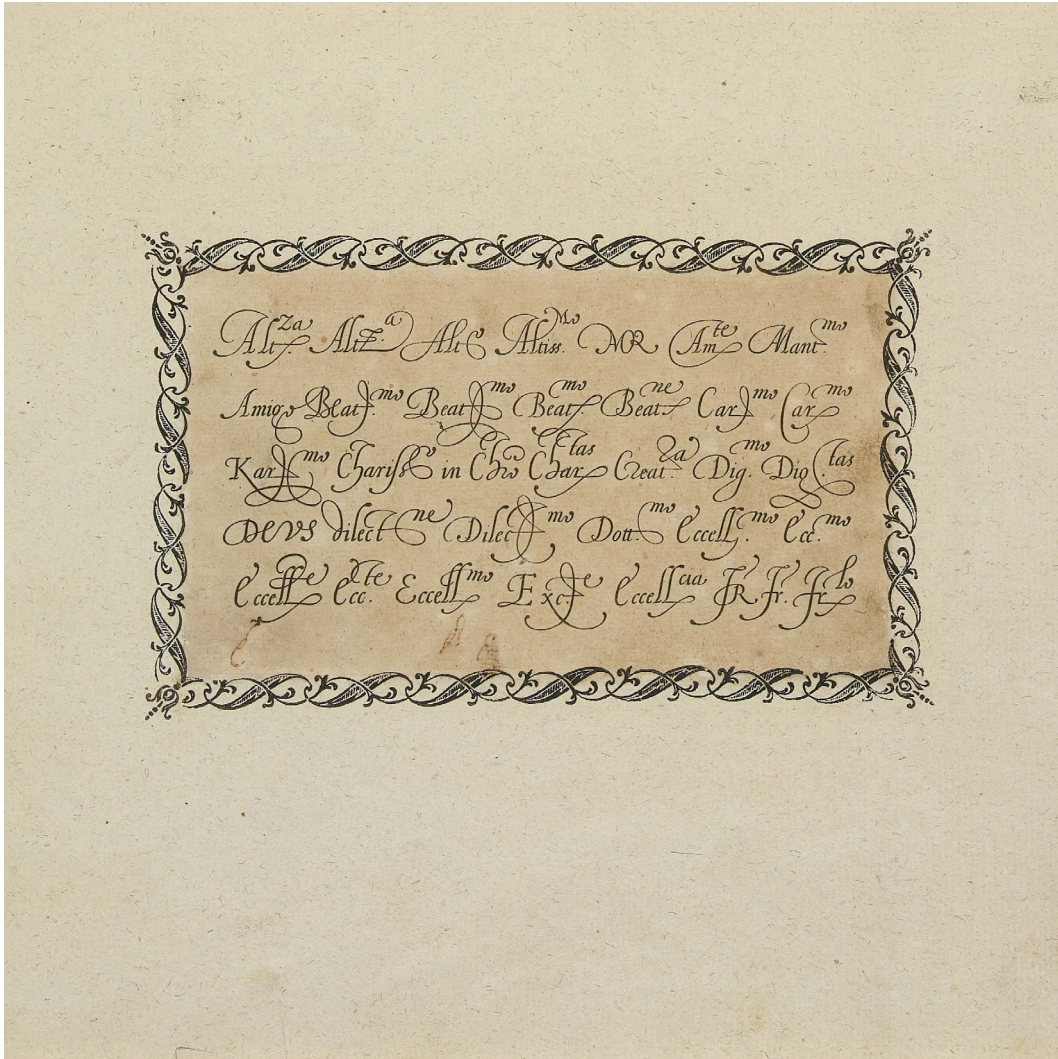 Altza. Altza. Alt Altiss.Mo MR Amte Mant.mo
Amigo Beat.mo Beatmo Beatmo Beatne Carmo Carmo
Karmo Chariss in Chro Chartas Creat.za Dig.mo Digtas
DEVS dilectne Dilecmo Dott.mo Eccell.mo Ecc.mo
Eccellte Ecc.te Eccellmo Exce Eccellcia FR. Fr. Fr.lo